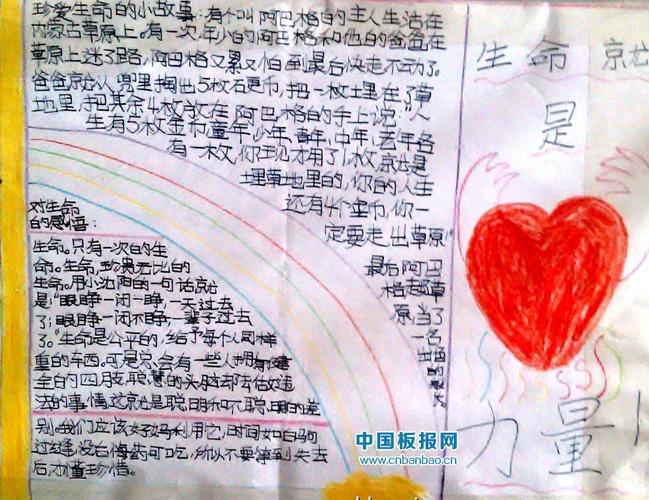 珍爱生命的小故事:有个叫阿巴格的主人生活在
内蒙古草原上。有一次,年少的阿巴格和他的爸爸在
草原上迷了路,阿巴格又累又怕到最后快走不动了。
爸爸就从兜里掏出5枚石更币,把一枚土里在了草
地里,把其余4枚放在阿巴格的手上说:"人
生有5枚金币,童年,少年,青年,中年,老年各
有一枚,你现才用了1枚,就是
埋草地里的,你的人生
还有4个金币,你一
定要走出草原!
最后阿巴
格走出草
原当了
一名
出色的
对生命
的感悟:
生命。只有一次的生
命。生命,珍贵无比的
生命。用小沈阳的一句话就
是:"眼睁一闭一睁,一天过去
了;眼睁一闭不睁,一辈子过去
了。"生命是公平的,给予每个人同样
重的东西。可是总会有一些人拥有健
全的四肢聪慧的头脑却法估处违
法的事情这就是聪明和不聪明的差
别。我们应该好好利用它,时间如白驹
过缝,没后悔药可吃,所以不要等到失去
后才懂珍惜。
生命就
是
力量!
中国板报网
www.cnbanbao.cn